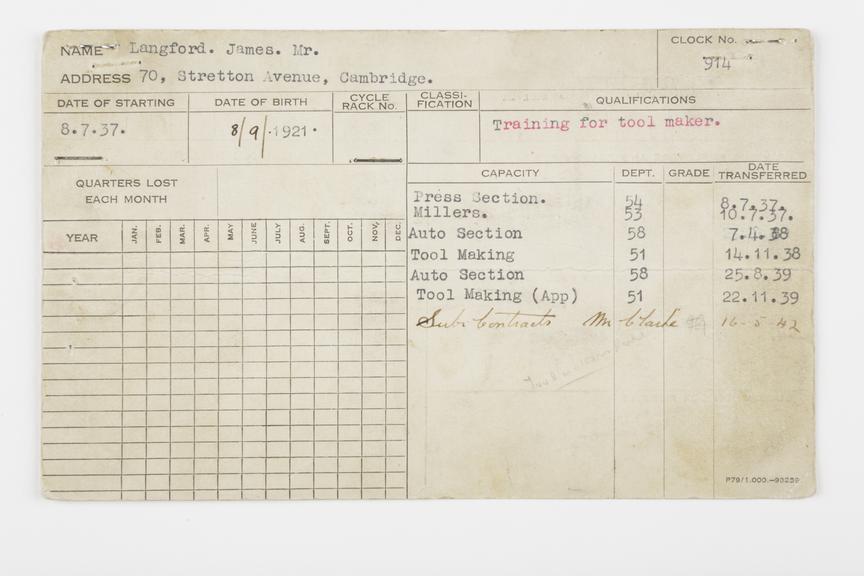 NAME Langford. James. Mr.
CLOCK No.
914
ADDRESS 70, Stretton Avenue, Cambridge.
DATE OF STARTING DATE OF BIRTH CYCLE RACK No. CLASSI-FICATION QUALIFICATIONS
8.7.37. 8/9/.1921. Training for tool maker.
QUARTERS LOST
EACH MONTH
CAPACITY DEPT. GRADE DATE TRANSFERRED
Press Section. 54 8.7.37.
Millers. 53 10.7.37.
YEAR JAN. FEB. MAR. APR. MAY JUNE JULY AUG. SEPT. OCT. NOV. DEC.
Auto Section 58 7.4.38
Tool Making 51 14.11.38
Auto Section 58 25.8.39
Tool Making (App) 51 22.11.39
Sub Contracts Mr Clarke 16-5-42
P79/1.000.-90259